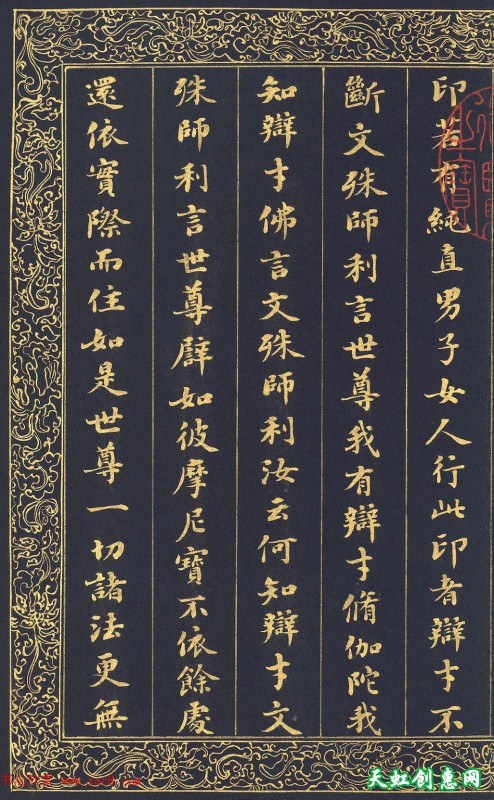 印若有純直男子女人行此印者辯才不
斷文殊師利言世尊我有辯才脩伽陀我
知辯才佛言文殊師利汝云何知辯才文
殊師利言世尊譬如彼摩尼寶不依餘處
還依實際而住如是世尊一切諸法更無
天虹创惠网